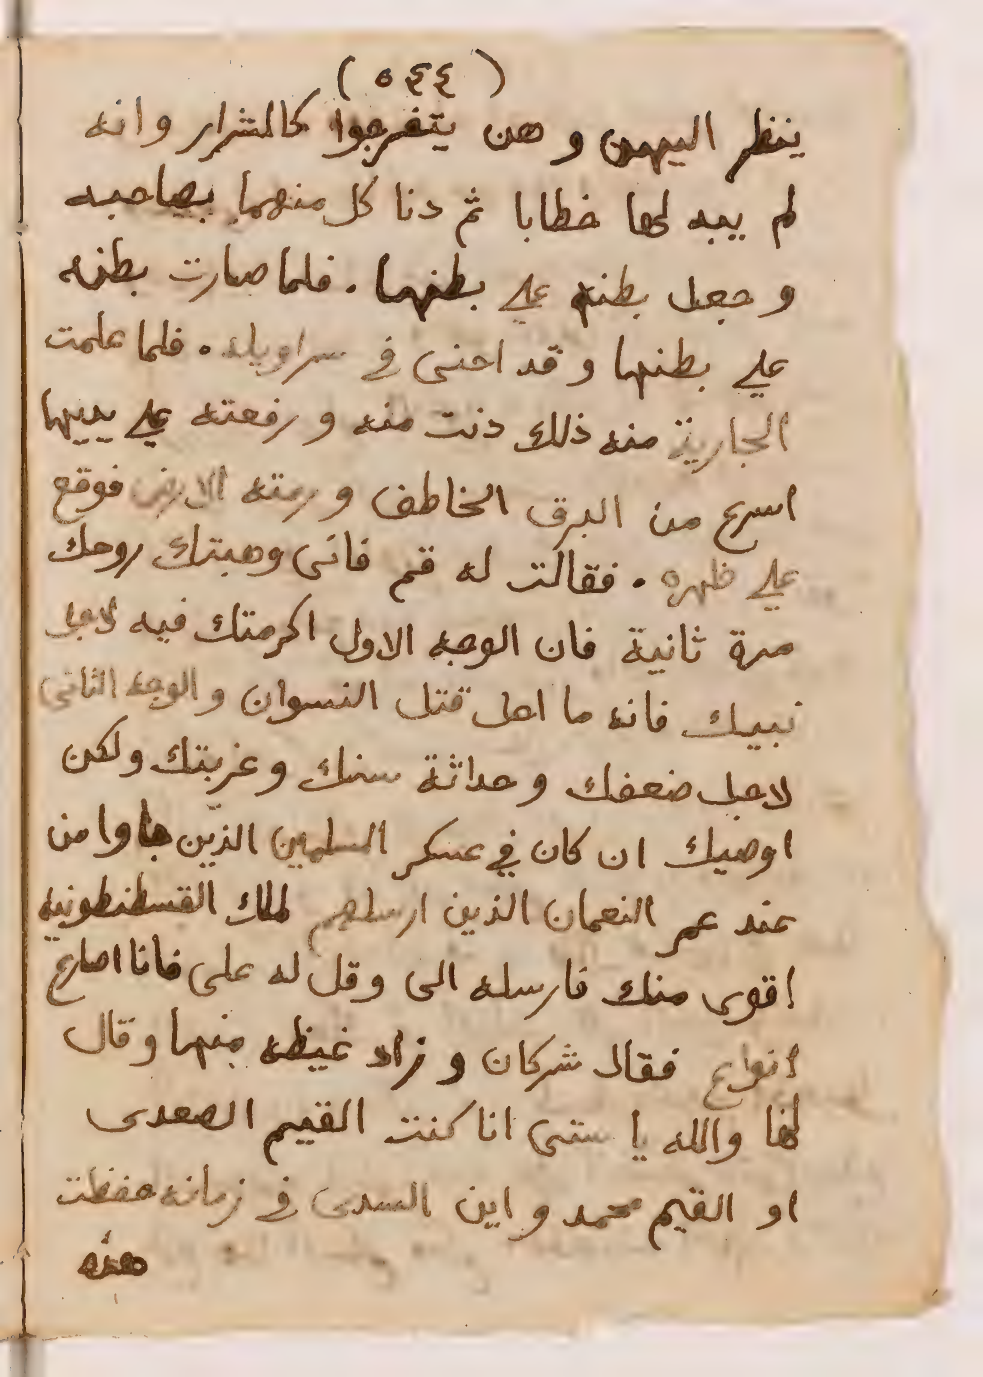 ( ٥٤٤ )
ينظر اليهن و هن يتفرجوا كالشرار وانه
لم يبد لها خطابا ثم دنا كل منهما بصاحبه
و جعل بطنه علي بطنها . فلما صارت بطنه
علي بطنها و قد احنى في سراويله . فلما علمت
الجارية منه ذلك دنت منه و رفعته علي يديها
اسرع من البرق الخاطف و رمته الارض فوقع
علي ظهره . فقالت له قم فانى وهبتك روحك
مرة ثانية فان الوجه الاول اكرمتك فيه لاجل
نبيك فانه ما احل قتل النسوان و الوجه الثانى
لاجل ضعفك و حداثة سنك و غربتك ولكن
اوصيك ان كان في عسكر المسلمين الذين جاوا من
عند عمر النعمان الذين ارسلهم لملك القسطنطونيه
اقوى منك فارسله الى وقل له على فانا اصارع
انواع فقال شركان و زاد غيظه منها وقال
لها والله يا ستى انا كنت القيم الصعدى
او القيم محمد و اين السدى في زمانه حفظت
هذه